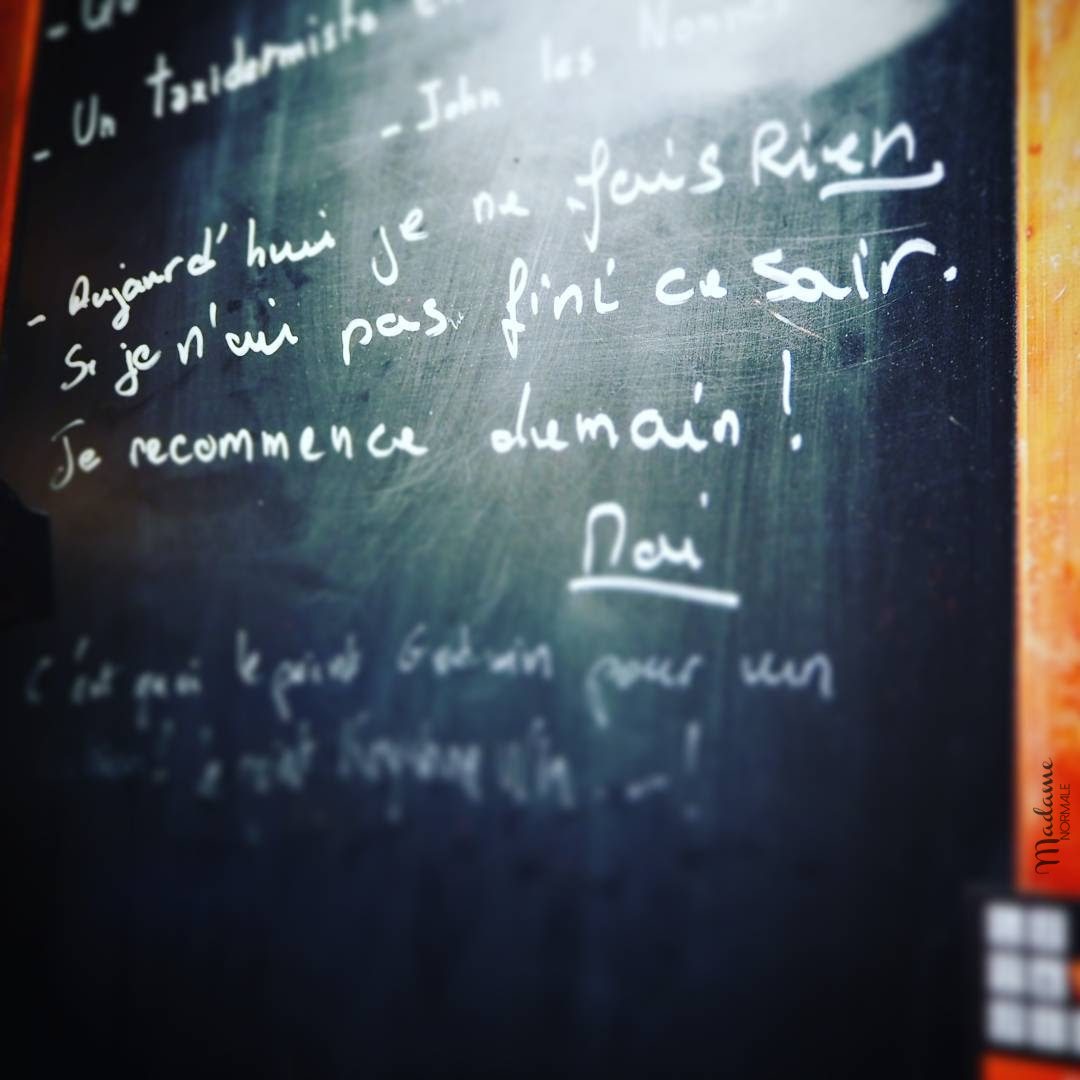 - Un taxidermiste
- John les
- Aujourd'hui je ne fais Rien
Si je n'ai pas fini ce soir.
Je recommence demain !
Moi
C'est quoi le point Godwin pour un
Madame
NORMALE